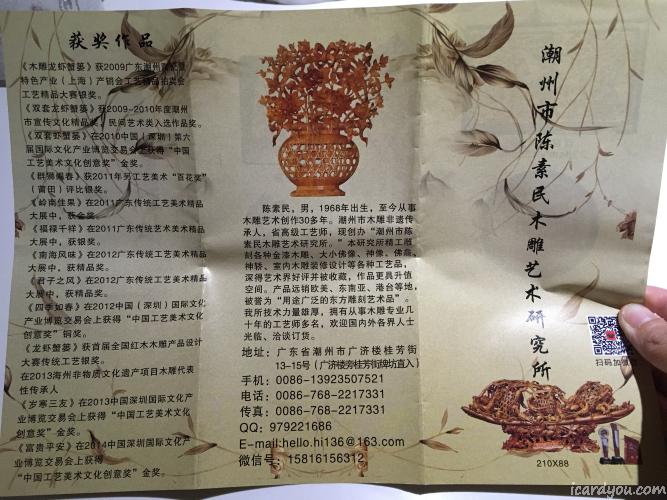 获奖作品
《木雕龙虾蟹篓》获2009广东潮州
特色产业（上海）产销会工艺精品拍卖会
工艺精品大赛银奖。
《双套龙虾蟹篓》获2009-2010年度潮州
市宣传文化精品奖、民间艺术类入选作品奖。
《双套虾蟹篓》在2010中国（深圳）第六
届国际文化产业博览交易会上获得“中国
工艺美术文化创意奖”金奖。
《群狮闹春》获2011年另工艺美术“百花奖”
（莆田）评比银奖。
《岭南佳果》在2011广东传统工艺美术精品
大展中，获金奖。
《福禄千祥》在2011广东传统艺术美术精品
大展中，获银奖。
《南海风味》在2012广东传统工艺美术精品
大展中，获精品奖。
《君子之风》在2012广东传统工艺美术精品
大展中，获银奖。
《四季如春》在2012中国（深圳）国际文化
产业博览交易会上获得“中国工艺美术文化
创意奖”铜奖。
《龙虾蟹篓》获首届全国红木木雕产品设计
大赛传统工艺银奖。
在2013海州非物质文化遗产项目木雕代表
性传承人
《岁寒三友》在2013中国深圳国际文化产
业博览交易会上获得“中国工艺美术文化
创意奖”金奖。
《富贵平安》在2014中国深圳国际文化产
业博览交易会上获得
“中国工艺美术文化创意奖”金奖。
陈素民，男，1968年出生，至今从事
木雕艺术创作30多年。潮州市木雕非遗传
承人，省高级工艺师，现创办“潮州市陈
素民木雕艺术研究所。”本研究所精工雕
刻各种金漆木雕、大小佛像、神像、佛龛、
神轿、室内木雕装修设计等各种工艺品，
深得艺术界好评并被收藏，作品更具升值
空间。产品远销欧美、东南亚、港台等地，
被誉为“用途广泛的东方雕刻艺术品”。
我所技术力量雄厚，拥有从事木雕专业几
十年的工艺师多名，欢迎国内外各界人士
光临、洽谈订货。
地址：广东省潮州市广济楼桂芳街
13-15号（广济楼旁桂芳街牌坊直入）
手机：0086-13923507521
电话：0086-768-2217331
传真：0086-768-2217331
QQ：979221686
E-mail:hello.hi136@163.com
微信号：15816156312
潮州市陈素民木雕艺术研究所
扫码加微
210X88
icardyou.com